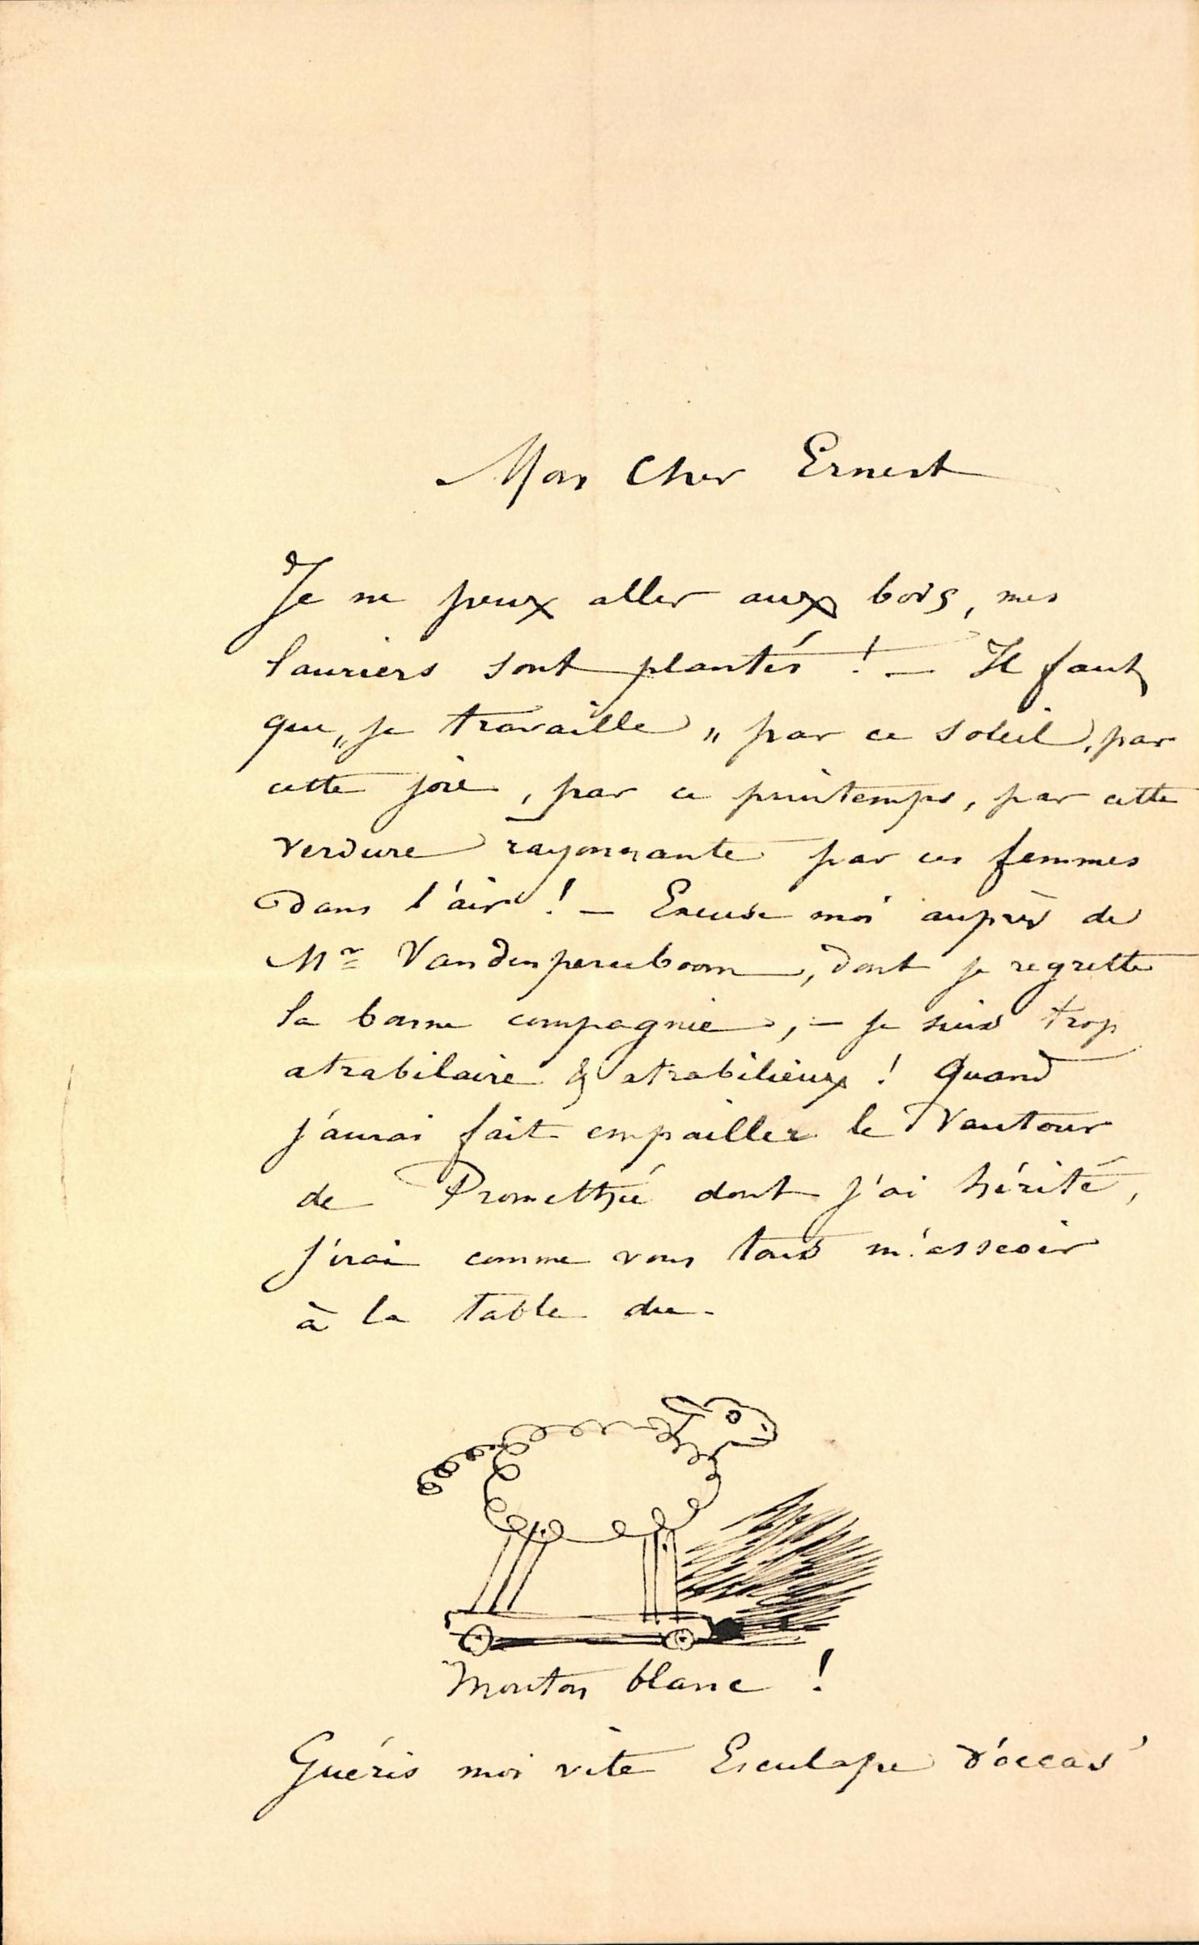 Mon Cher Ernest
Je ne peux aller aux bois, mes
lauriers sont plantés ! — Il faut
que „je travaille„ par ce soleil, par
cette joie, par ce printemps, par cette
verdure rayonnante par ces femmes
dans l'air ! — Excuse moi auprès de
Mr Vandenpereeboom, dont je regrette
la bonne compagnie, — je suis trop
atrabilaire & atrabilieux ! Quand
j'aurai fait empailler le Vautour
de Promethée dont j'ai hérité,
j'irai comme vous tous m'asseoir
à la table du.
Mouton blanc !
Guéris moi vite Esculape d'occas'